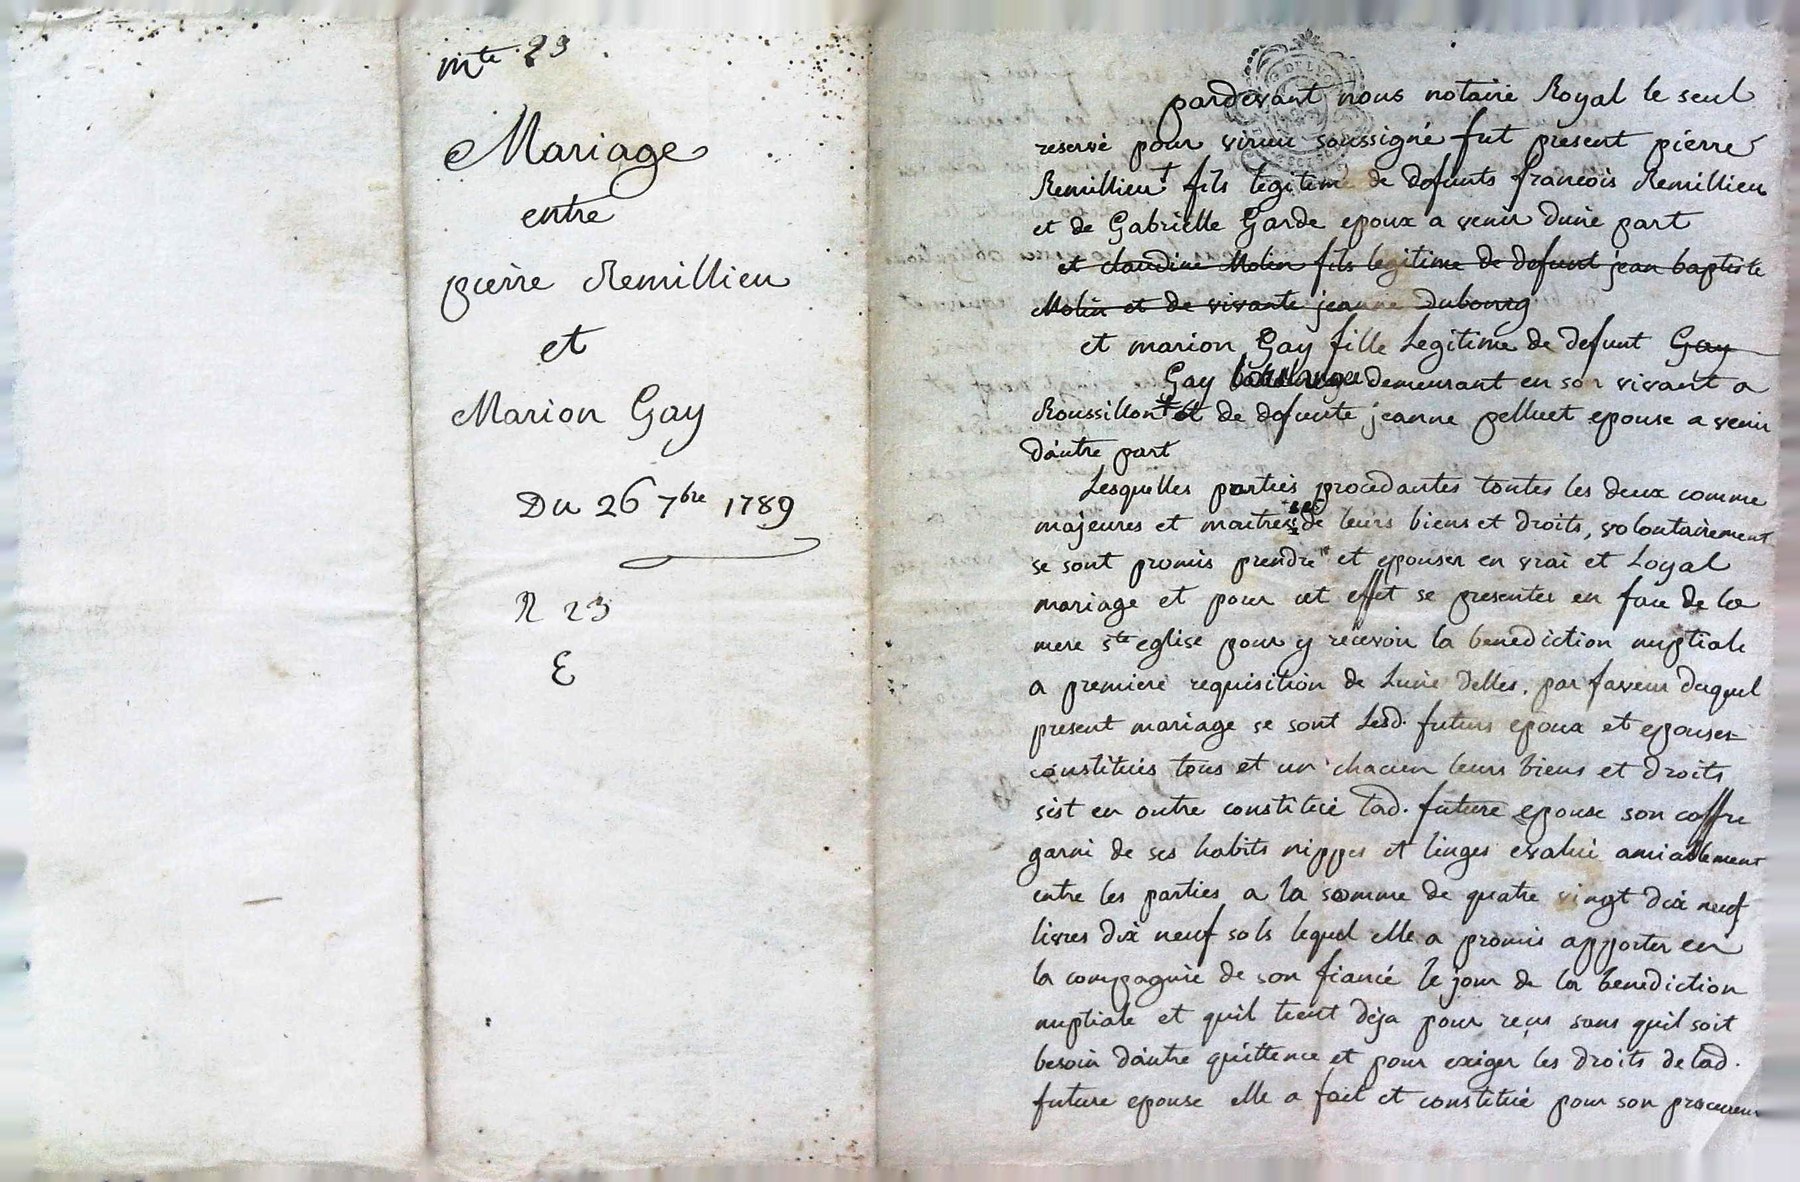 mte 23
Mariage
entre
pierre Remillieu
et
Marion Gay
Du 26 7bre 1789
R 23
E
pardevant nous notaire Royal le seul
reservé pour virieu soussigné fut present pierre
Remillieu fils legitime de defunts francois Remillieu
et de Gabrielle Garde epoux a venir dune part
et claudine Molin fils legitime de defunt jean baptiste
Molin et de vivante jeanne Dubourg
et marion Gay fille Legitime de defunt Gay
Gay boulanger demeurant en son vivant a
Roussillon et de defunte jeanne pelluet epouse a venir
dautre part
Lesquelles parties procedantes toutes les deux comme
majeures et maitresses de leurs biens et droits, volontairement
se sont promis prendre et epouser en vrai et Loyal
mariage et pour cet effet se presenter en face de la
mere ste eglise pour y recevoir la benediction nuptiale
a premiere requisition de Lune delles, par faveur duquel
present mariage se sont Lesd. futurs epoux et epouses
constitués tous et un chacun leurs biens et droits
sest en outre constitué lad. future epouse son coffre
garni de ses habits nippes et linges evalué amiablement
entre les parties a la somme de quatre vingt dix neuf
livres dix neuf sols lequel elle a promis apporter en
la compagnie de son fiancé le jour de la benediction
nuptiale et quil tient deja pour reçus sans quil soit
besoin dautre quittence et pour exiger les droits de lad.
future epouse elle a fait et constitué pour son procureur